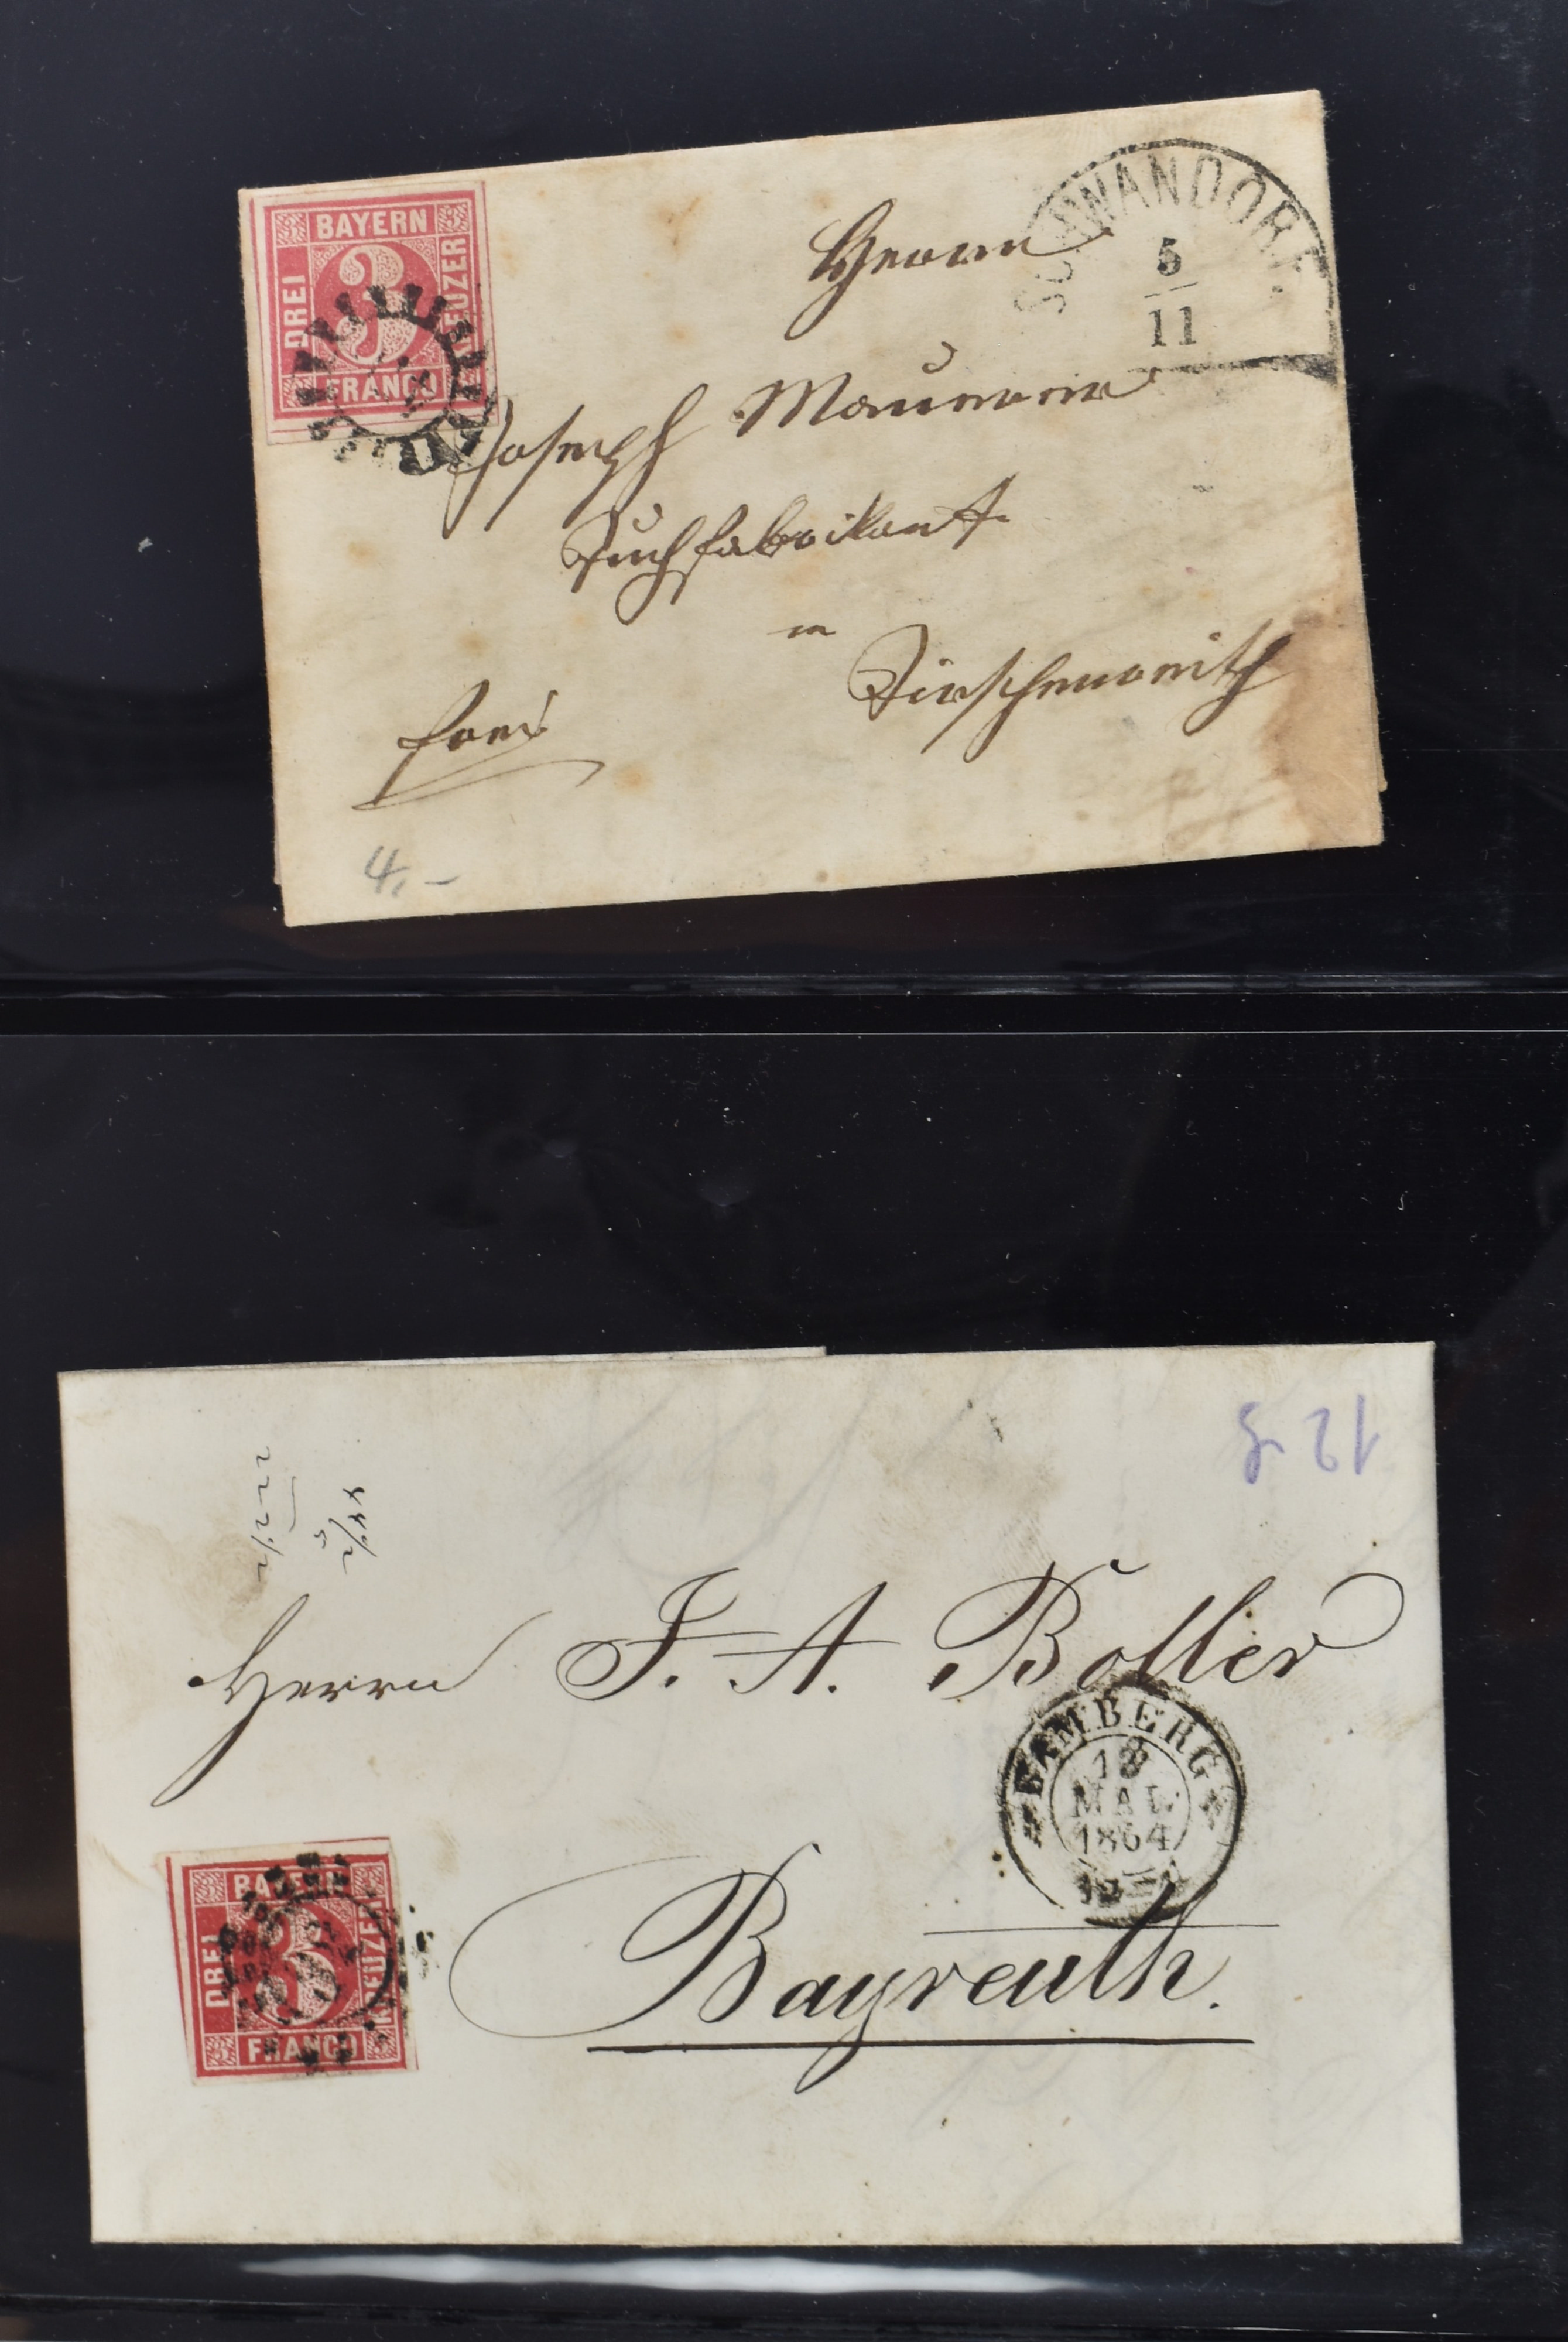 BAYERN
DREI
3
KREUZER
FRANCO
SCHWANDORF.
5
11
Herrn
Joseph Maurer
Tuchfabrikant
in
Tirschenreuth
frei
4,-
Herrn J. A. Boller
BAMBERG
18
MAI
1864
Bayreuth.
BAYERN
DREI
3
KREUZER
FRANCO